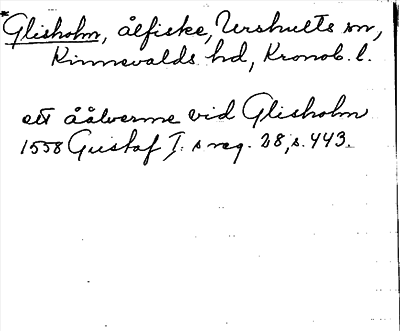 *Glisholm, ålfiske, Urshults sn,
Kinnevalds hd, Kronob. l.
ett åålverme vid Glisholm
1558 Gustaf I:s reg. 28, s. 443.